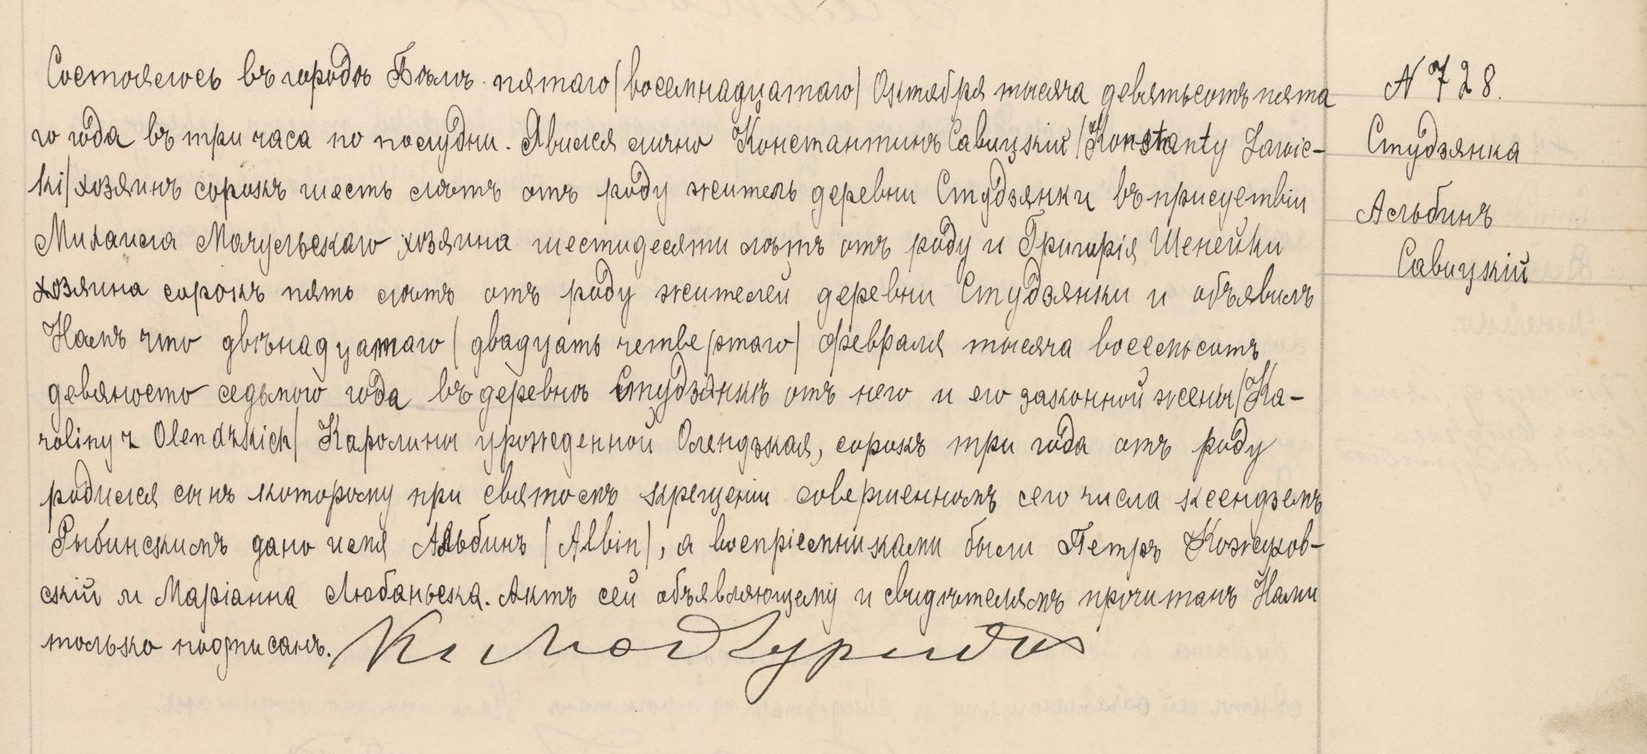 Состоялось въ городѣ Бѣлѣ пятаго /восемнадцатаго/ Октября тысяча девятьсотъ пята
го года въ три часа по полудни. Явился лично Константинъ Савицкій /Konstanty Sawic-
ki/ хозяинъ сорокъ шесть лѣтъ отъ роду житель деревни Студзянки въ присутствіи
Михаила Мачульскаго хозяина шестидесяти лѣтъ отъ роду и Григорія Шенейки
хозяина сорокъ пять лѣтъ отъ роду жителей деревни Студзянки и объявилъ
Намъ что двѣнадцатаго /двадцать четвертаго/ февраля тысяча восемьсотъ
девяносто седьмого года въ деревнѣ Студзянкѣ отъ него и его законной жены /Ka-
roliny z Olendzkich/ Каролины урожденной Олендзкая, сорокъ три года отъ роду
родился сынъ которому при святомъ крещеніи совершенномъ сего числа ксендзомъ
Рыбинскимъ дано имя Альбинъ /Albin/, а воспріемниками были Петръ Кожухов-
скій и Маріанна Любаньска. Актъ сей объявляющему и свидѣтелямъ прочитанъ Нами
только подписанъ.
N 728.
Студзянка
Альбинъ
Савицкій